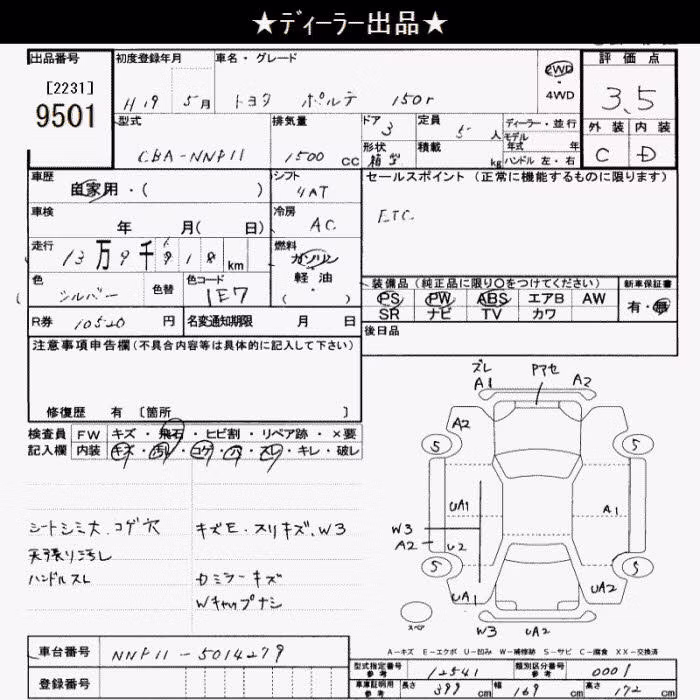 ★ディーラー出品★
出品番号
[2231]
9501
初度登録年月
H19 5月
車名・グレード
トヨタ ポルテ 150r
2WD
・
4WD
評価点
3.5
外装 内装
C D
型式
CBA-NNP11
排気量
1500 CC
ドア 3
形状 箱型
定員 5 人
積載 kg
ディーラー・並行
モデル年式 年
ハンドル 左・右
車歴
自家用・( )
シフト
4AT
セールスポイント(正常に機能するものに限ります)
ETC
車検
年 月( 日)
冷房
AC
走行
13万9千918 km
燃料
ガソリン
軽油
( )
色
シルバー
色替
色コード
1E7
装備品(純正品に限り○をつけてください)
PS PW ABS エアB AW
SR ナビ TV カワ
新車保証書
有・無
R券 10520 円
名変通知期限 月 日
後日品
注意事項申告欄(不具合内容等は具体的に記入して下さい)
修復歴 有 〔箇所 〕
検査員 FW キズ・飛石・ヒビ割・リペア跡・×要
記入欄 内装 キズ・汚れ・コゲ・穴・スレ・キレ・破レ
シートシミ大.コゲ穴
天張り汚レ
ハンドルスレ
キズE.スリキズ.W3
カミラーキズ
Wキャップナシ
ズレ
A1
Pアセ
A2
A2
S
S
UA1
A1
W3
A2
U2
S
S
UA1
UA2
スペア
W3 UA2
A-キズ E-エクボ U-凹み W-補修跡 S-サビ C-腐食 XX-交換済
車台番号 NNP11-5014279
登録番号
型式指定番号 参考 12541
類別区分番号 参考 0001
車庫証明用 参考 長さ 399 cm 幅 169 cm 高さ 172 cm